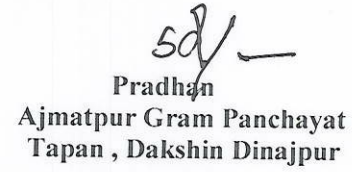 Sd/-
Pradhan
Ajmatpur Gram Panchayat
Tapan , Dakshin Dinajpur